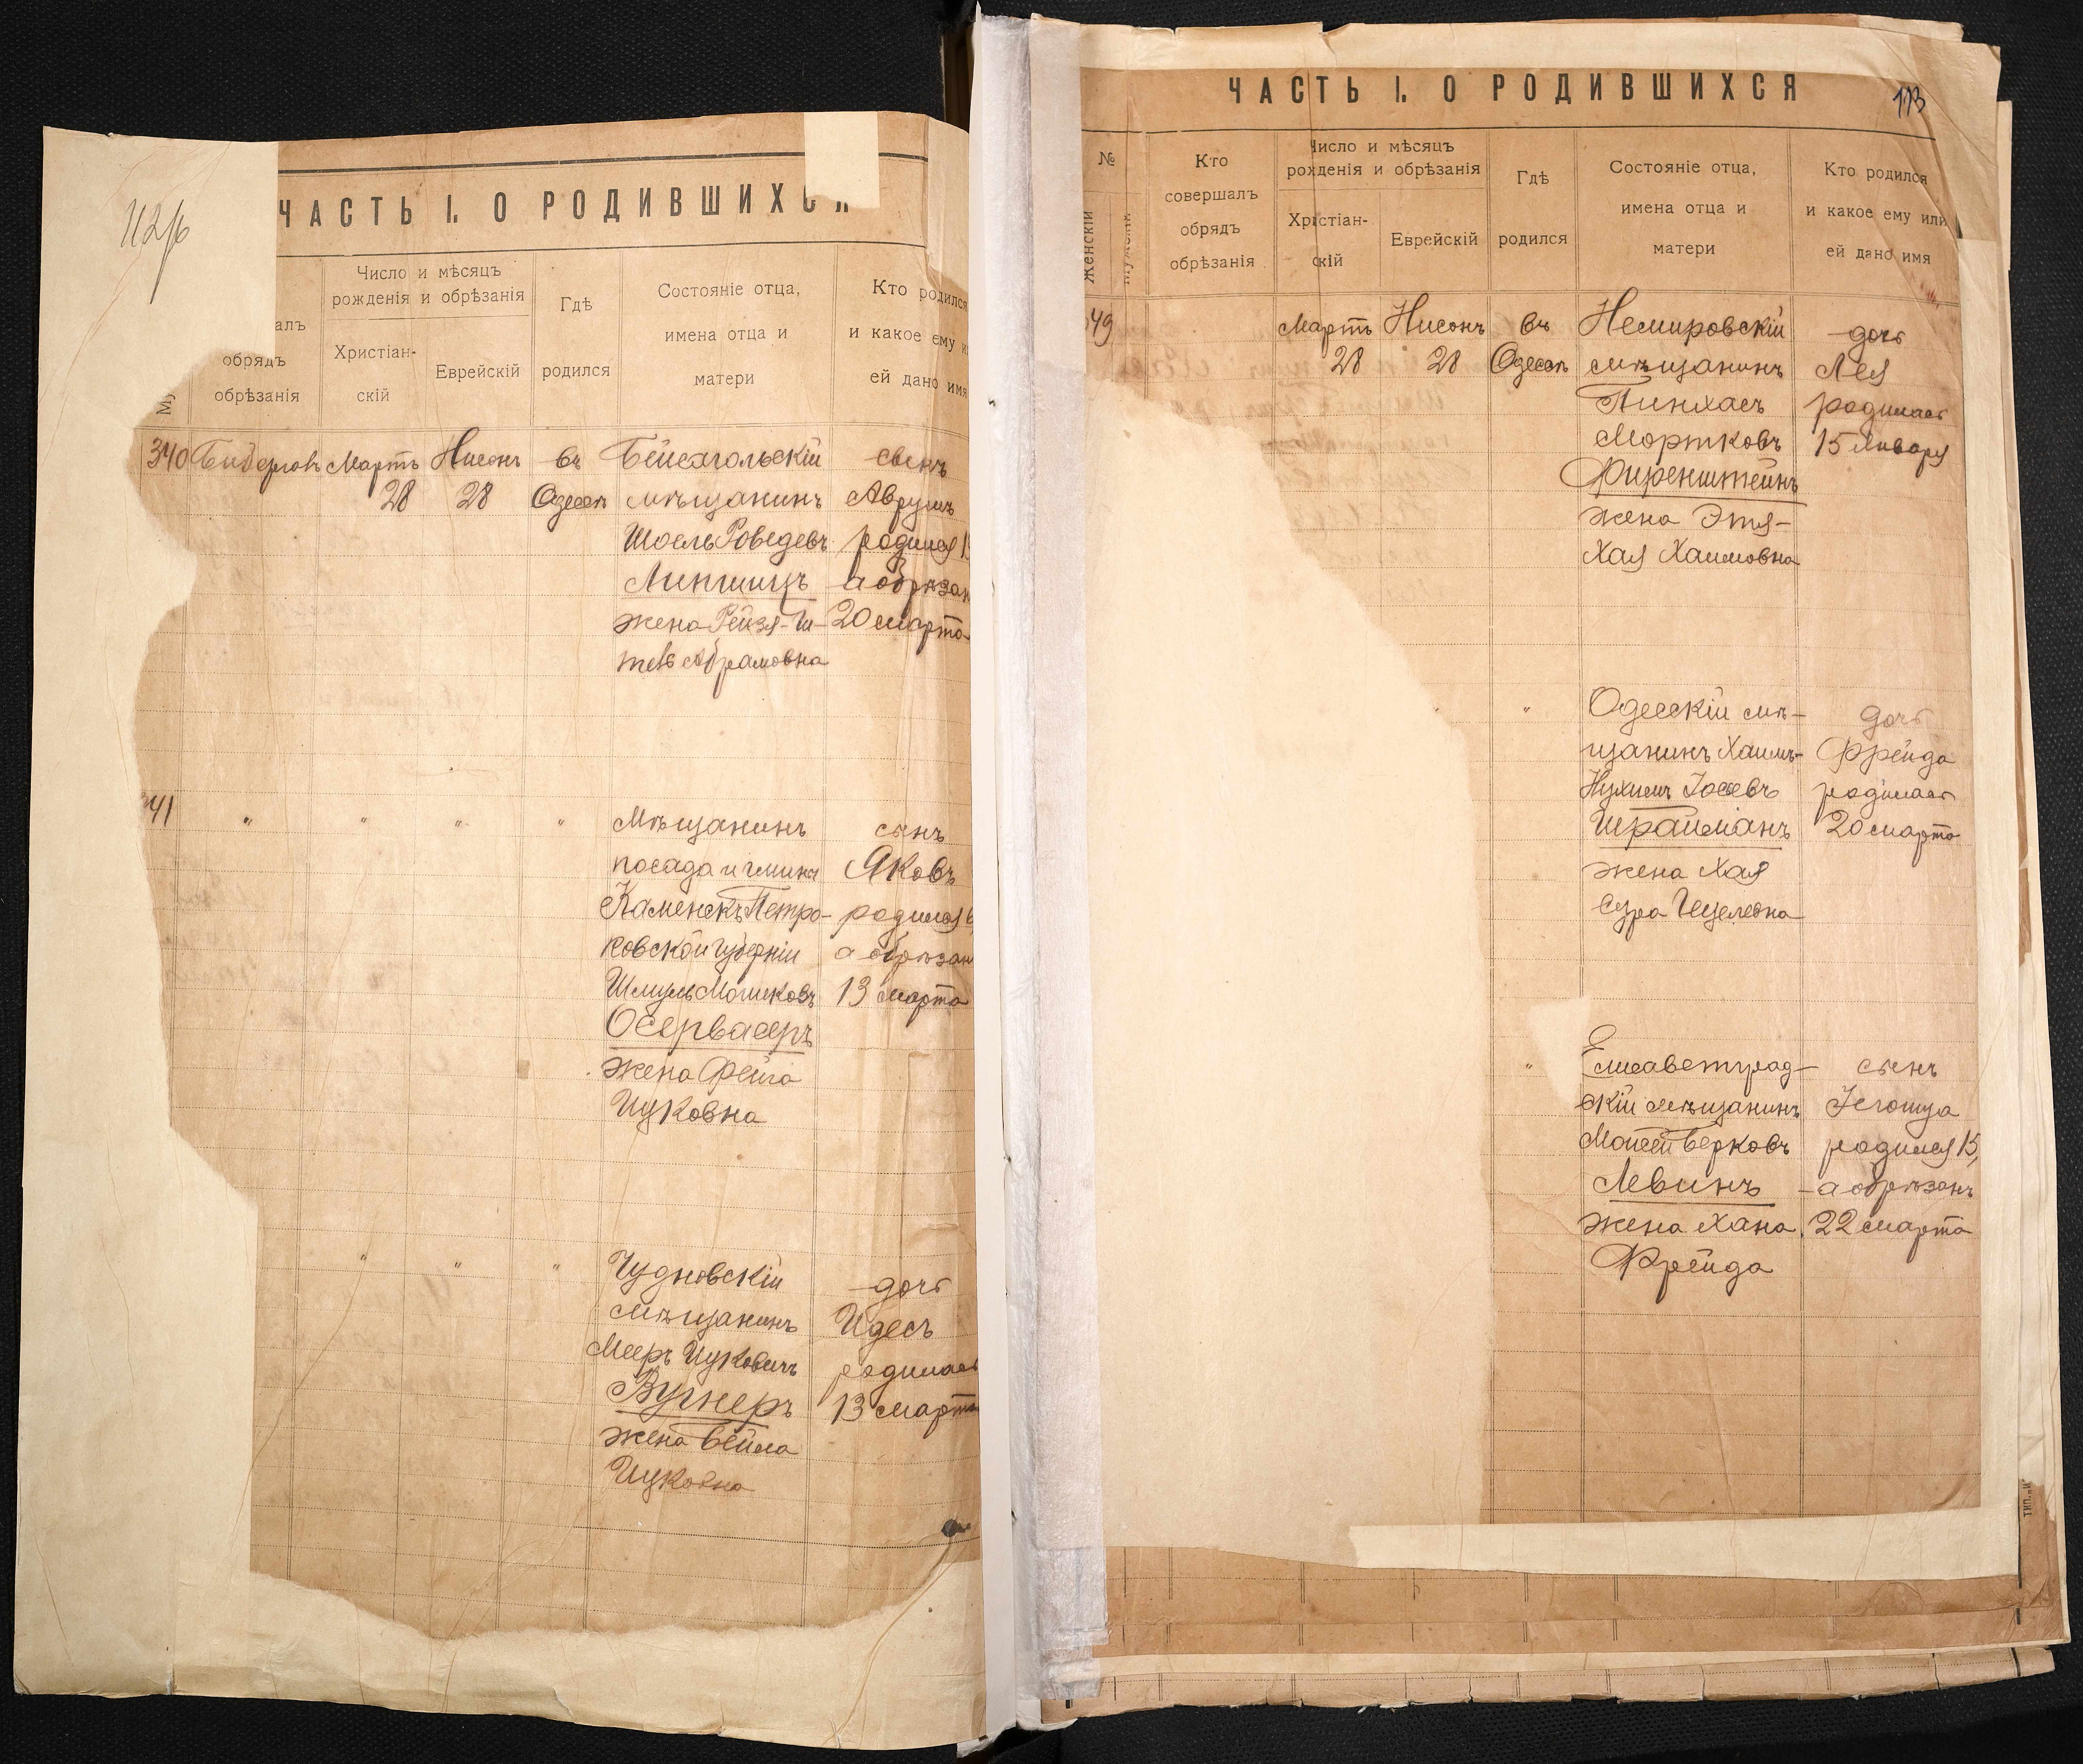 112/б
ЧАСТЬ I. О РОДИВШИХСЯ
алъ
обрядъ
обрѣзанія
Число и мѣсяцъ
рожденія и обрѣзанія
Христіан-
скій
Еврейскій
Гдѣ
родился
Состояніе отца,
имена отца и
матери
Кто родился
и какое ему и
ей дано имя
340
Март
28
Нисонъ
28
въ
Одессѣ
Бейсагольскій
мѣщанинъ
Шоель
Липшицъ
жена Рейзя-И-
Абрамовна
сынъ
Аврумъ
родился 1
а обрѣзан
20 марта
41
"
"
"
"
Мѣщанинъ
посада и гмины
Каменскъ Петро-
ковской губерніи
Шмуль Мошковъ
жена Фейга
Ицковна
сынъ
Яковъ
родился 6
а обрѣзан
13 марта
"
"
"
Чудновскій
мѣщанинъ
Мееръ Ицковичъ
Вугнеръ
жена Бейла
Ицковна
дочь
Идесъ
родилась
13 марта
113
ЧАСТЬ I. О РОДИВШИХСЯ
№
Женскій
Кто
совершалъ
обрядъ
обрѣзанія
Число и мѣсяцъ
рожденія и обрѣзанія
Христіан-
скій
Еврейскій
Гдѣ
родился
Состояніе отца,
имена отца и
матери
Кто родился
и какое ему или
ей дано имя
49
Мартъ
28
Нисонъ
28
въ
Одессѣ
Немировскій
мѣщанинъ
Пинхасъ
Мортковъ
Фиренштейнъ
жена Этя-
Хая Хаимовна
дочь
Лея
родилась
15 Января
"
"
Одесскій мѣ-
щанинъ Хаимъ-
Нухимъ Іосевъ
Шрайманъ
жена Хая
Сура
дочь
Фрейда
родилась
20 марта
"
Елисаветград-
скій мѣщанинъ
Мойсей Берковъ
Левинъ
жена Хана
Фрейда
сынъ
Іегошуа
родился 15,
а обрѣзанъ
22 марта